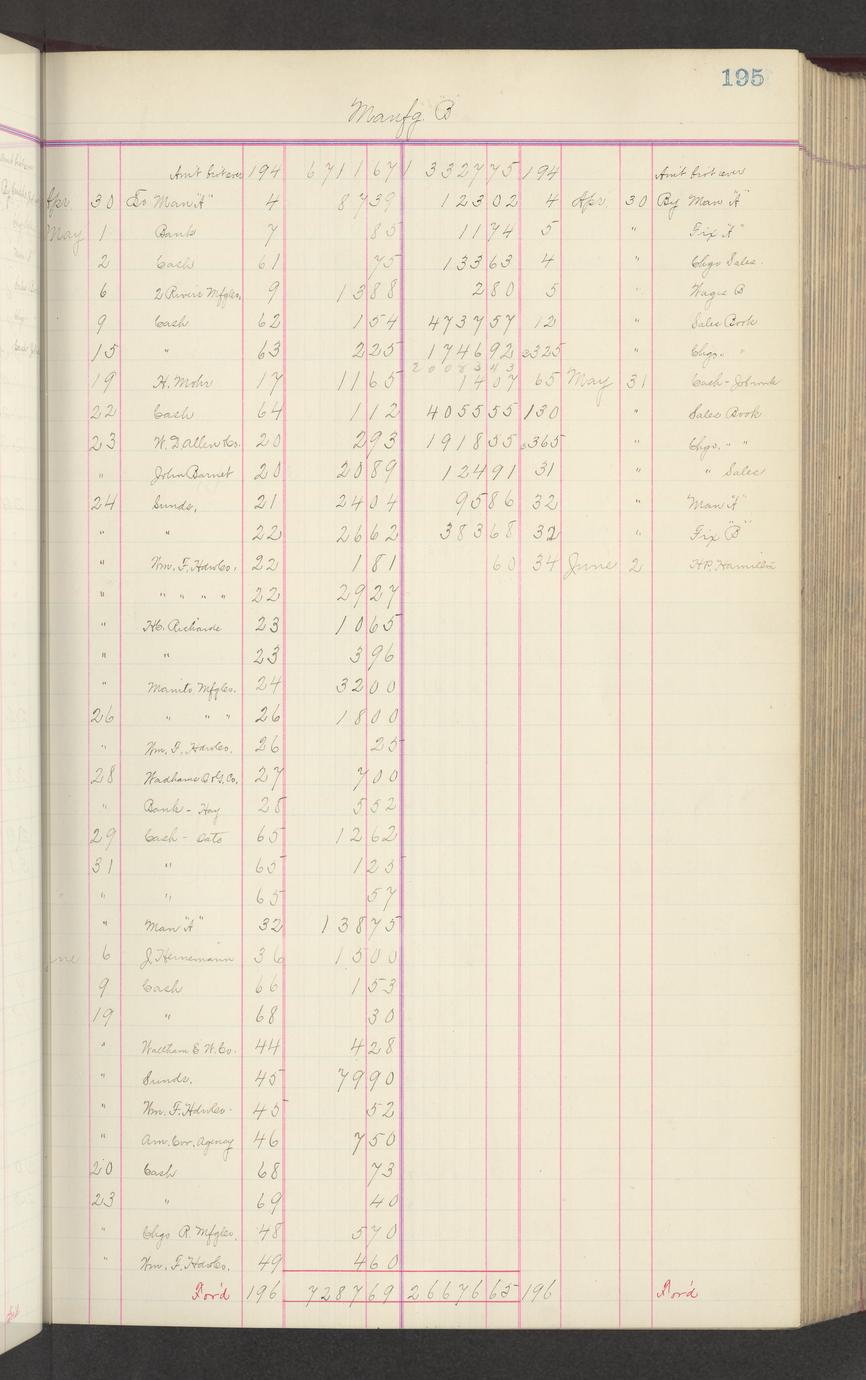 195
Manfg. B
Am't brot over 194 6711 67 13327 75 194 Am't brot over
Apr 30 To Man "A" 4 87 39 123 02 4 Apr 30 By Man "A"
May 1 Bank 7 85 11 74 5 " Fix "A"
2 Cash 61 75 133 63 4 " Chgo Sales.
6 2 Rivers Mfg Co. 9 13 88 2 80 5 " Wages B
9 Cash 62 1 54 4737 57 12 " Sales Book
15 " 63 2 25 1746 92 325 " Chgo. " "
20083 43
19 H. Mohr 17 11 65 14 07 65 May 31 Cash - Jobwork
22 Cash 64 1 12 4055 55 130 " Sales Book
23 W. D Allen Co. 20 2 93 1918 55 365 " Chgo. " "
" John Barnet 20 20 89 124 91 31 " " Sales
24 Sunds. 21 24 04 95 86 32 " Man "A"
" " 22 26 62 383 68 32 " Fix "B"
" Wm. F. Hdw Co. 22 1 81 60 34 June 2 H.P. Hamilton
" " " " " 22 29 27
" H.C. Richards 23 10 65
" " 23 3 96
" Manito Mfg Co. 24 32 00
26 " " " 26 18 00
" Wm. F. Hdw Co. 26 25
28 Wadhams O & G. Co. 27 7 00
" Bank - Hay 28 5 52
29 Cash - Oats 65 12 62
31 " 65 1 25
" " 65 57
" Man "A" 32 138 75
June 6 J. Heinemann 36 15 00
9 Cash 66 1 53
19 " 68 30
" Waltham E W. Co. 44 4 28
" Sunds. 45 79 90
" Wm. F. Hdw Co. 45 52
" Am. Cor. Agency 46 7 50
20 Cash 68 73
23 " 69 40
" Chgo R. Mfg Co. 48 5 70
" Wm. F. Hdw Co. 49 4 60
For'd 196 7287 69 26676 65 196 For'd